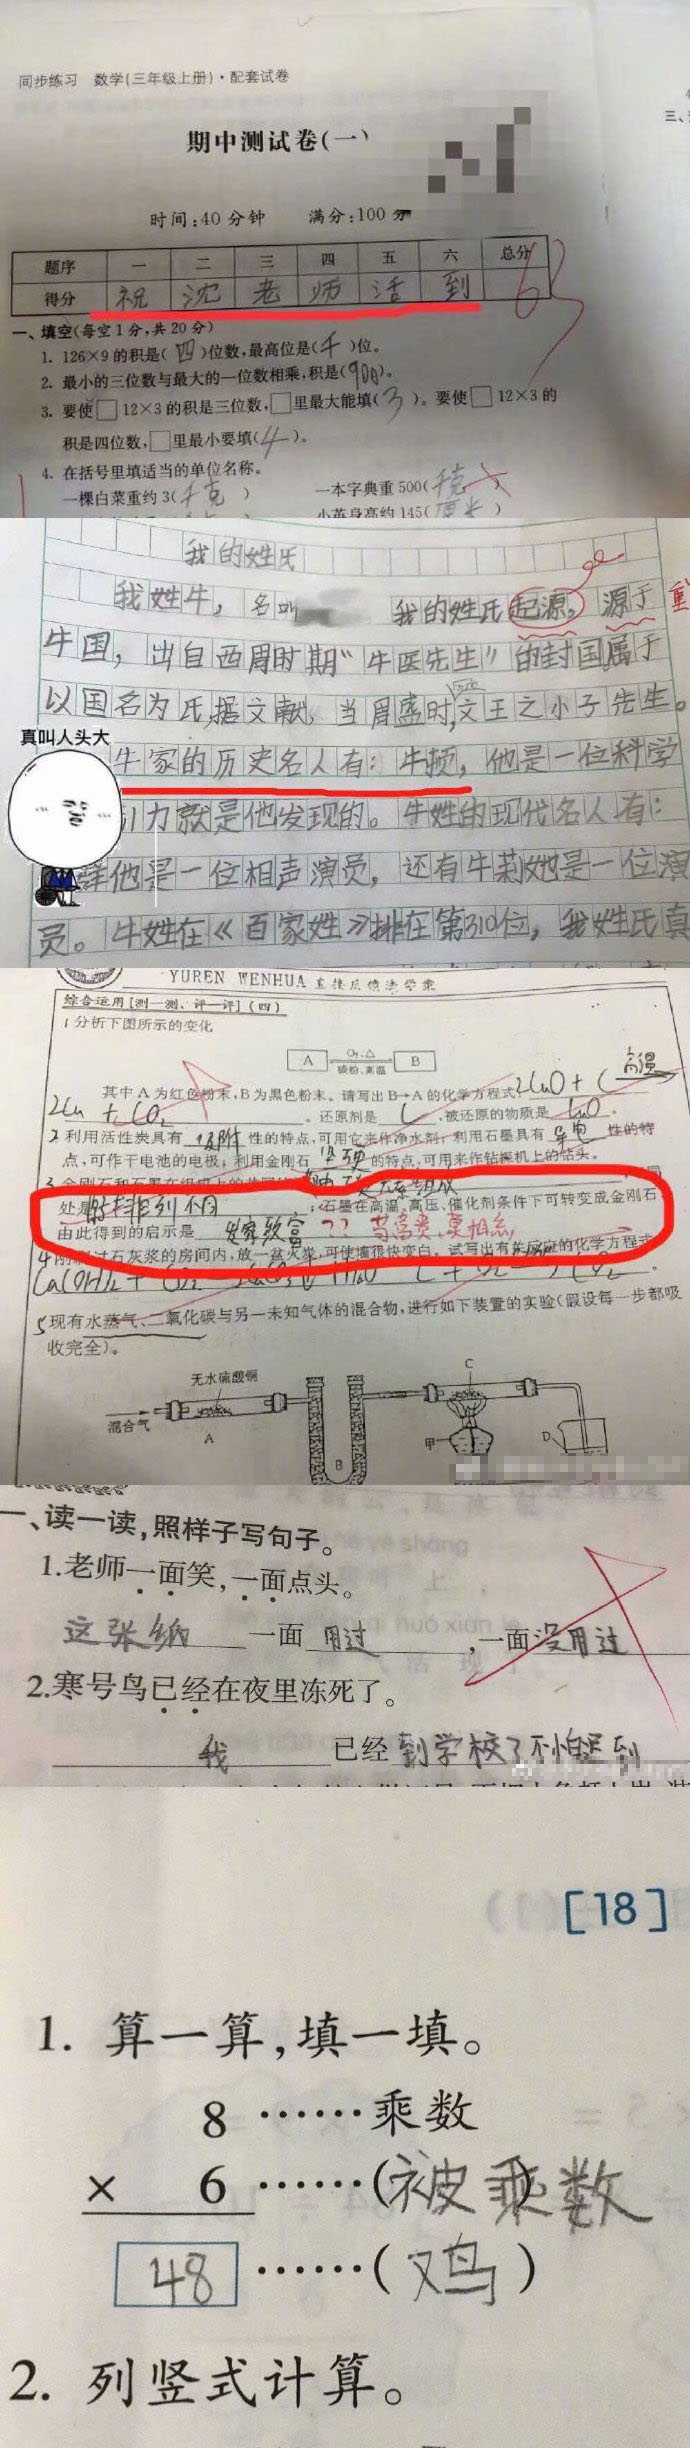 同步练习 数学(三年级上册)·配套试卷
期中测试卷(一)
时间:40分钟 满分:100分
题序 一 二 三 四 五 六 总分
得分 祝 沈 老 师 活 到 63
一、填空(每空1分,共20分)
1. 126×9的积是(四)位数,最高位是(千)位。
2. 最小的三位数与最大的一位数相乘,积是(900)。
3. 要使□12×3的积是三位数,□里最大能填(3)。要使□12×3的
积是四位数,□里最小要填(4)。
4. 在括号里填适当的单位名称。
一棵白菜重约3(千克) 一本字典重500(千克)
小英身高约145(厘米)
三、
我的姓氏
我姓牛,名叫 我的姓氏起源,源于
牛国,出自西周时期“牛医先生”的封国,属于
以国名为氏,据文献,当周盛时,文王之小子先生。
真叫人头大
牛家的历史名人有:牛顿,他是一位科学
引力就是他发现的。牛姓的现代名人有:
他是一位相声演员,还有牛莉她是一位演
员。牛姓在《百家姓》排在第310位,我姓氏真
YUREN WENHUA 直接反馈法学案
综合运用[测一测、评一评](四)
1分析下图所示的变化
A B
碳粉、高温
其中A为红色粉末,B为黑色粉末。请写出B→A的化学方程式 2CuO + C 高温
2Cu + CO2 。还原剂是 C ,被还原的物质是 CuO 。
2利用活性炭具有 吸附 性的特点,可用它来作净水剂;利用石墨具有 导电 性的特
点,可作干电池的电极;利用金刚石 坚硬 的特点,可用来作钻探机上的钻头。
处是 的排列不同 ;石墨在高温、高压、催化剂条件下可转变成金刚石,
由此得到的启示是 发家致富 ?? 苟富贵,莫相忘
4刚刷过石灰浆的房间内,放一盆火炭,可使墙很快变白。试写出有关反应的化学方程式
5现有水蒸气、二氧化碳与另一未知气体的混合物,进行如下装置的实验(假设每一步都吸
收完全)。
无水硫酸铜
混合气
A
B
C
甲
D
一、读一读,照样子写句子。
1.老师一面笑,一面点头。
这张纸 一面 用过 ,一面 没用过
2.寒号鸟已经在夜里冻死了。
我 已经 到学校了不怕迟到
[18]
1. 算一算,填一填。
8 ……乘数
× 6 ……(被乘数
48 ……(鸡)
2. 列竖式计算。